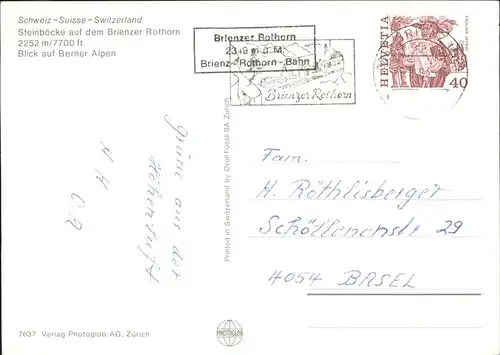 Schweiz-Suisse-Switzerland
Steinböcke auf dem Brienzer Rothorn
2252 m/7700 ft.
Blick auf Berner Alpen
Brienzer Rothorn
2349 m ü. M.
Brienz-Rothorn-Bahn
Brienzer Rothorn
HELVETIA
40
Grüsse aus der
Höhenluft
Printed in Switzerland by Orell Füssli SA, Zürich
Fam.
H. Röthlisberger
Schöllenenstr. 29
4054 BASEL
7637 Verlag Photoglob-AG, Zürich
PHOTOGLOB